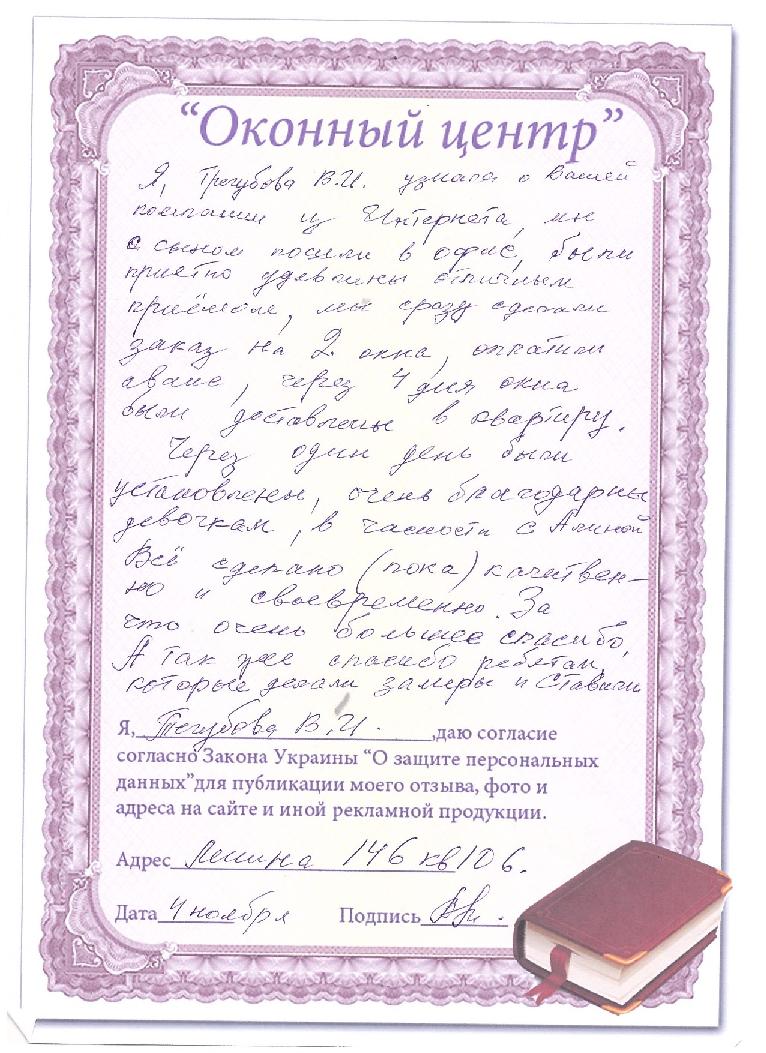 “Оконный центр”
Я, Трегубова В.И. узнала о Вашей
компании из Интернета, мы
с сыном пошли в офис, были
приетно удевлины отличным
приёмом, мы сразу сделали
заказ на 2 окна, оплатили
аванс, через 4 дня окна
были доставлены в квартиру.
Через один день были
установлены, очень благодарны
девочкам, в часности с Алиной
Всё сделано (пока) качиствен-
но и своевременно. За
что очень большее спасибо,
А так же спасибо ребятам,
которые делали замеры и ставили
Я, Трегубова В.И. ,даю согласие
согласно Закона Украины “О защите персональных
данных”для публикации моего отзыва, фото и
адреса на сайте и иной рекламной продукции.
Адрес Ленина 146 кв 106.
Дата 4 ноября Подпись